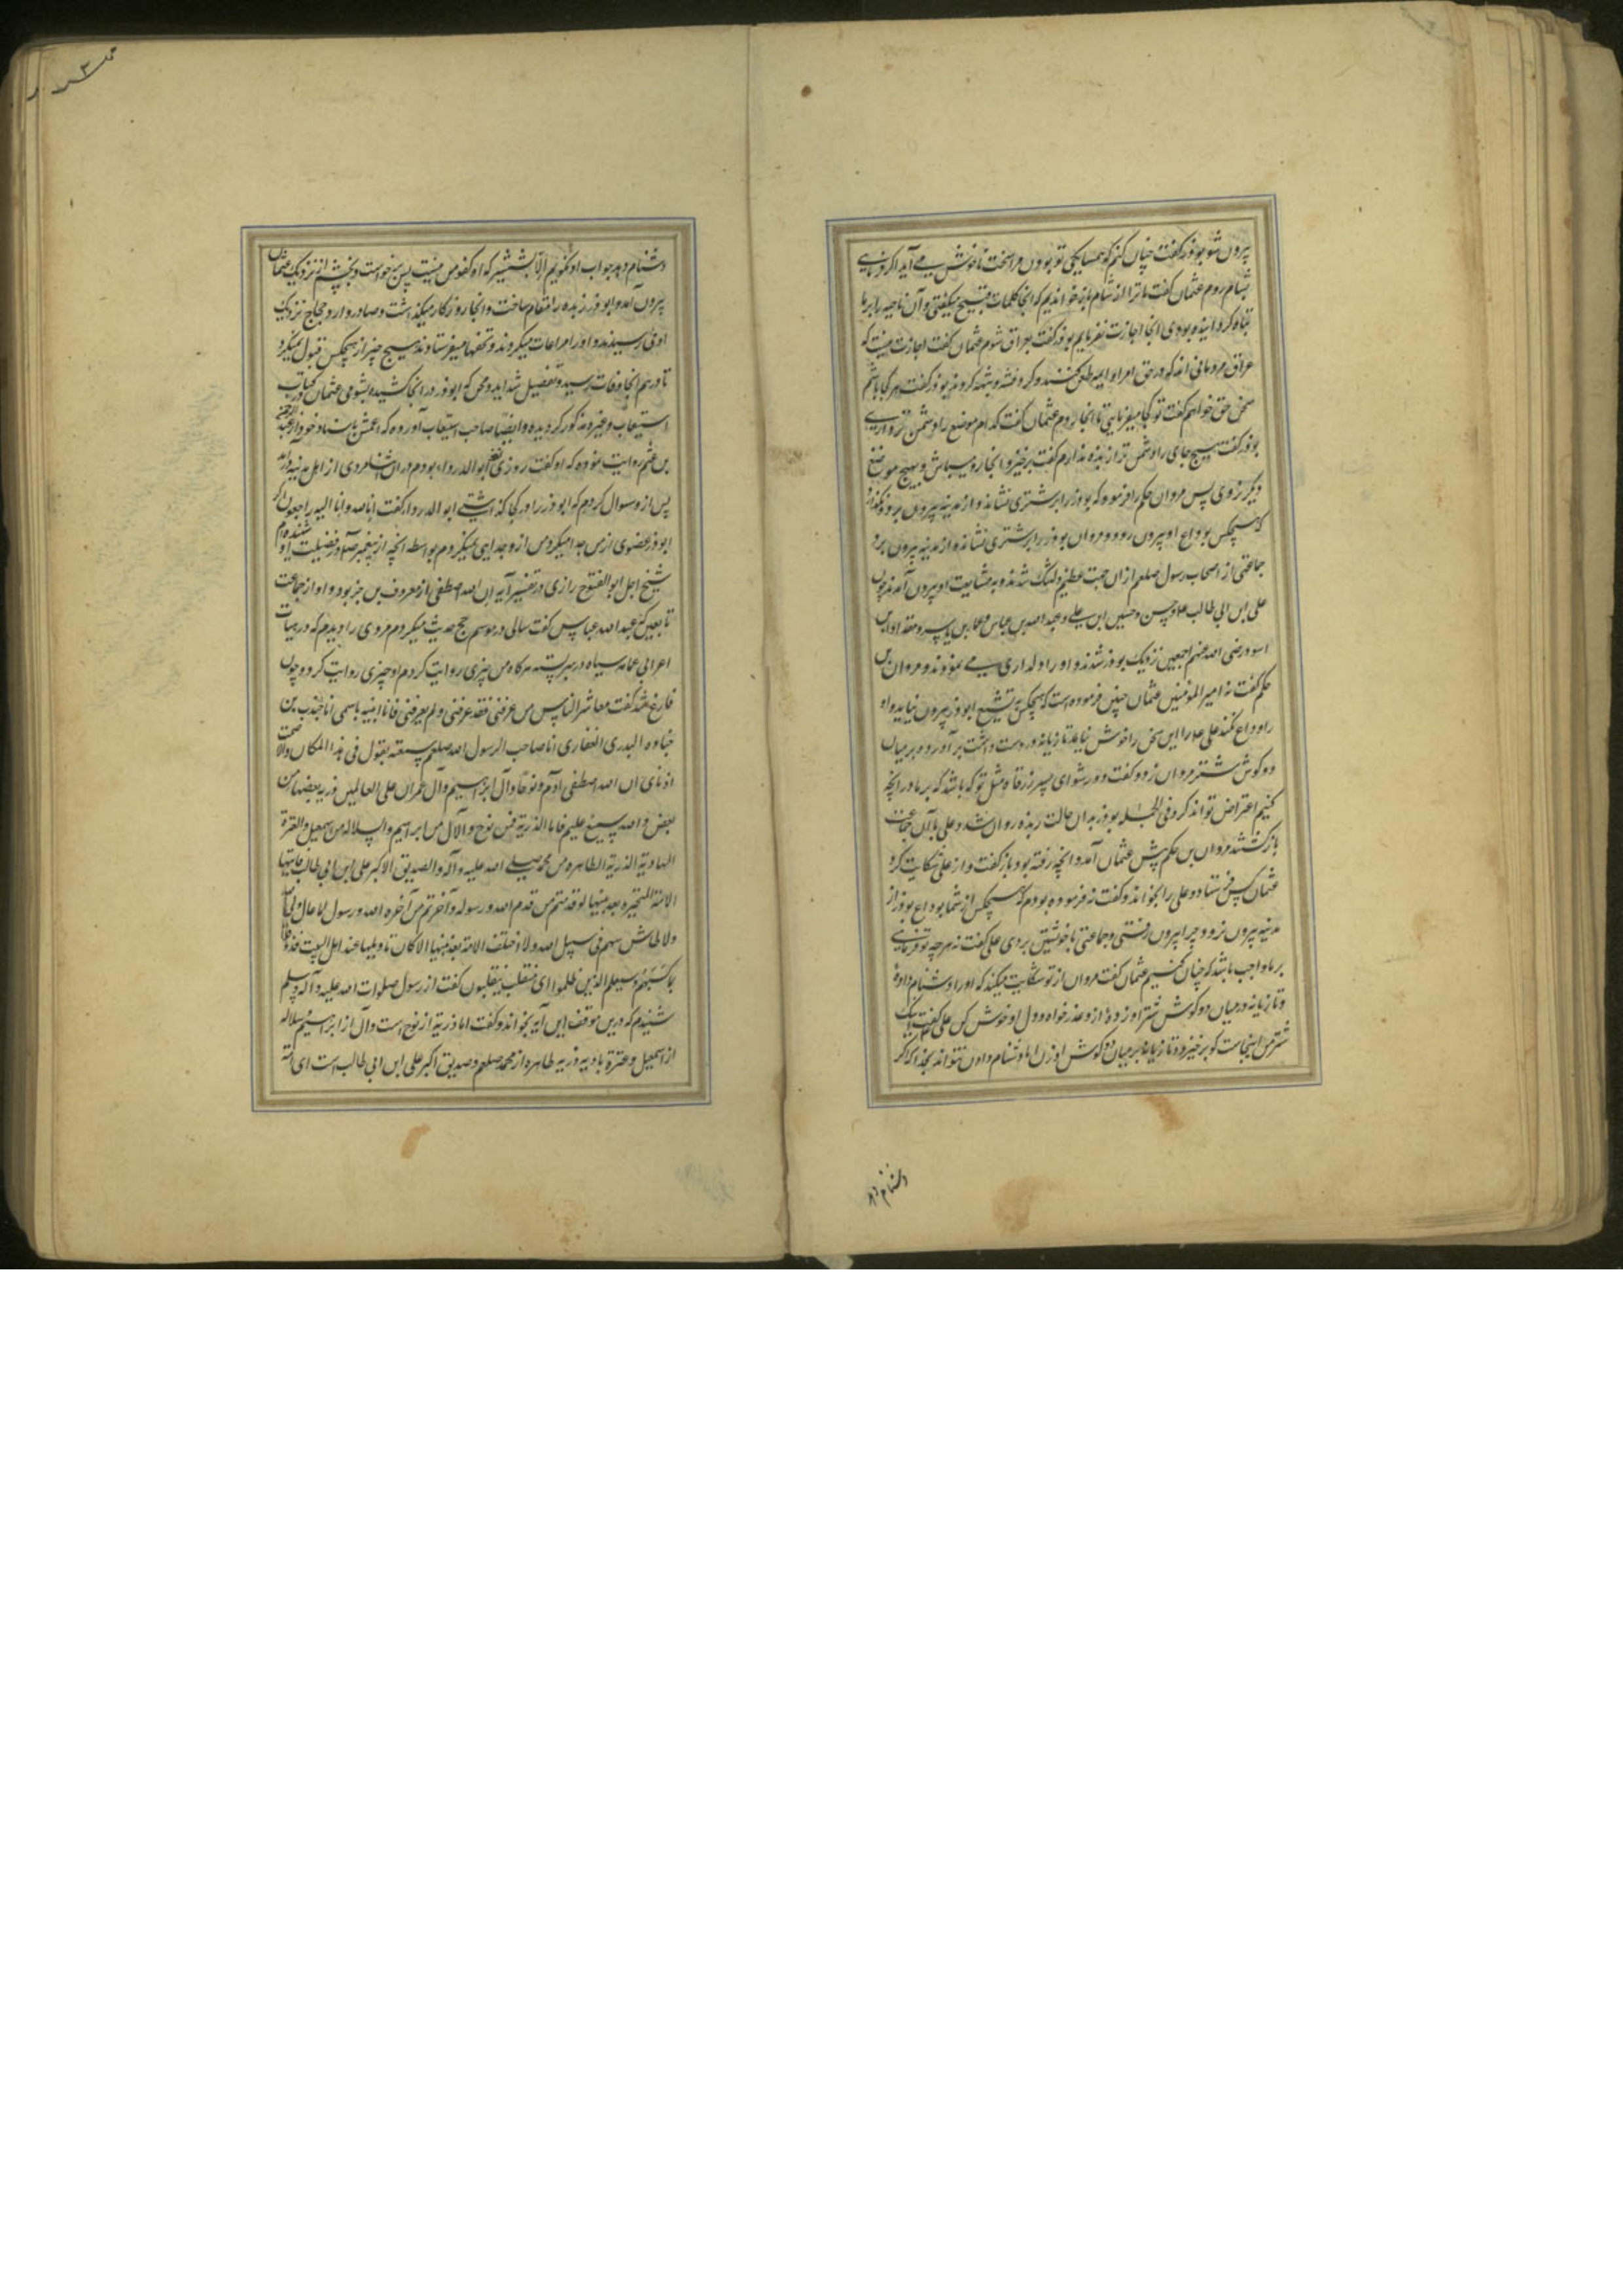 پیرون شو بوذر گفت چنان کنم که همسایکی تو بودن مرا سخت ناخوش می آید اکر فرمایی
بشام روم عثمان گفت ما ترا از شام باز خواندیم که انجا کلمات قبیح میکفتی و آن ناحیه را بر ما
تباه کردانیده بودی انجا اجازت نفرمایم بوذر گفت بعراق شوم عثمان گفت اجازت نیست که
عراق مردمانی اند که در حق امرا و ایمه طعن کنند و کروه فتنه و شبهه کردند بوذر گفت هر کجا باشم
سخن حق خواهم گفت تو کجا میفرمایی تا انجا روم عثمان گفت کدام موضع را دشمن تر داری
بوذر گفت هیچ جای را دشمن تر از ربذه ندارم گفت برخیز و انجا رو و میباش و بهیچ موضع
دیگر نروی پس مروان حکم را فرمود که بوذر را بر شتری نشاند و از مدینه پیرون برد و نگذارد
که هیچکس بوداع او پیرون رود و مروان بوذر را بر شتری نشاند و از مدینه پیرون برد
جماعتی از اصحاب رسول صلعم ازان جهت عظیم دلتنگ شدند و به مشایعت او پیرون آمدند چون
علی ابن ابی طالب ع و حسن و حسین ابن علی و عبد الله بن عباس و عمار بن یاسر و مقداد ابن
اسود رضی الله عنهم اجمعین نزدیک بوذر شدند و او را دلداری می نمودند و مروان بن
حکم گفت نه امیر المومنین عثمان چنین فرموده است که هیچکس به تشییع ابوذر پیرون نیاید و او
را وداع نکند علی ع را این سخن را خوش نیامد تازیانه در دست داشت بر آورد و بر میان
دو کوش شتر مروان زد و گفت دور شو ای پسر زرقاء مثل تو که باشد که بر ما در انچه
کنیم اعتراض تواند کرد فی الجمله بوذر بدان حالت ربذه روان شد و علی با آن جماعت
باز گشتند مروان بن حکم پیش عثمان آمد و انچه رفته بود باز گفت و از علی شکایت کرد
عثمان کس فرستاد و علی را بخواند و گفت نه فرموده بودم که هیچکس از شما بوداع بوذر از
مدینه پیرون نرود چرا پیرون رفتی و جماعتی با خویشتن بردی علی گفت نه هر چه تو فرمایی
بر ما واجب باشد که چنان کنیم عثمان گفت مروان از تو شکایت میکند که او را دشنام داده
و تازیانه در میان دو کوش شتر او زده از و عذر خواه و دل او خوش کن علی گفت اینک
شتر من اینجاست کو برخیزد و تازیانه بر میان دو کوش او زن اما دشنام دادن نتواند بخدا که اکر
دشنام دهد
دشنام دهد جواب او نگویم الا بشمشیر که او کفو من نیست پس برخواست و بخشم از نزدیک عثمان
پیرون آمد و ابوذر ربذه را مقام ساخت و انجا روزکار میکذاشت و صادر و وارد حجاج نزدیک
او می رسیدند و او را مراعات میکردند و تحفها میفرستادند هیچ چیز از هیچکس قبول نمیکرد
تا در هم انجا وفات رسید و تفصیل شداید و محن که ابوذر در انجا کشید و بشومی عثمان در کتاب
استیعاب و غیره مذکور کردیده و ایضا صاحب استیعاب آورده که اعمش باسناد خود از عبد الرحمن
بن غنم روایت نموده که او کفت روزی نزد ابو الدرداء بودم در ان اثنا مردی از اهل مدینه درآمد
پس از و سوال کردم که ابوذر را در کجا کذاشتی ابو الدرداء کفت انا لله و انا الیه راجعون اکر
ابوذر عضوی از من جدا میکرد من از و جدایی نمیکردم بواسطه انچه از پیغمبر صلعم در فضیلت او شنیده ام
شیخ اجل ابو الفتوح رازی در تفسیر آیه ان الله اصطفی از معروف بن خربوذ و او از جماعت
تابعین که عبد الله عباس کفت سالی در موسم حج حدیث میکردم مردی را دیدم که در هیات
اعرابی عمامه سیاه در سر بسته هرکاه من چیزی روایت کردم او چیزی روایت کرد و چون
فارغ شد کفت معاشر الناس من عرفنی فقد عرفنی و لم یعرفنی فانا انبئه باسمی انا جندب بن
جناده البدری الغفاری انا صاحب الرسول الله صلعم سمعته یقول فی هذا المکان و الا صمت
اذنای ان الله اصطفی آدم و نوحا و آل ابرهیم و آل عمران علی العالمین ذریه بعضها من
بعض و الله سمیع علیم فاما الذریه فمن نوح و الآل من ابراهیم و السلاله من اسمعیل و العترة
الهادیة الذریة الطاهره من محمد صلی الله علیه و آله و الصدیق الاکبر علی ابن ابی طالب فایتها
الامة المتحیره بعد نبیها لو قدمتم من قدم الله و رسوله و اخرتم من آخره الله و رسول لما عال ولی الله
و لا طاش سهم فی سبیل الله و لا اختلف الامة بعد نبیها الا کان تاویلها عند اهل البیت فذوقوا
بما کسبتم و سیعلم الذین ظلموا ای منقلب ینقلبون کفت از رسول صلوات الله علیه و آله و سلم
شنیدم که درین موقف این آیه بخواند و کفت اما ذریة از نوح است و آل از ابرهیم و سلاله
از اسمعیل و عترة هادیه و ذریه طاهره از محمد صلعم و صدیق اکبر علی ابن ابی طالب است ای امة